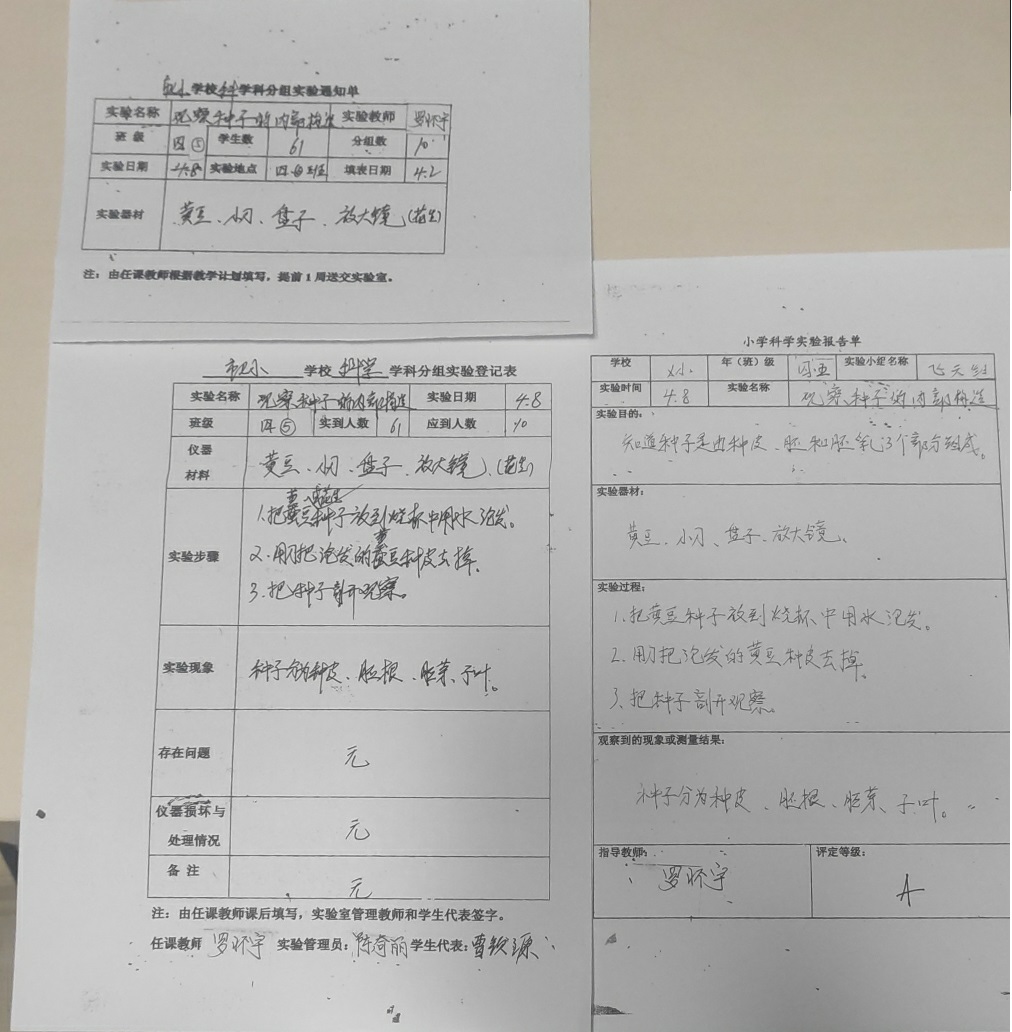 学校科学科分组实验通知单
实验名称 观察种子的内部构造 实验教师 罗怀宇
班 级 四⑤ 学生数 61 分组数 10
实验日期 4.8 实验地点 四⑤班 填表日期 4.2
实验器材 黄豆、小刀、盘子、放大镜、(花生)
注：由任课教师根据教学计划填写，提前1周送交实验室。
学校 科学 学科分组实验登记表
实验名称 观察种子的内部构造 实验日期 4.8
班级 四⑤ 实到人数 61 应到人数 10
仪器
材料
黄豆、小刀、盘子、放大镜、(花生)
实验步骤
1.把黄豆种子放到烧杯中用水泡发。
2.用刀把泡发的黄豆种皮去掉。
3.把种子剖开观察。
实验现象 种子分为种皮、胚根、胚芽、子叶。
存在问题 元
仪器损坏与
处理情况
元
备 注 元
注：由任课教师课后填写，实验室管理教师和学生代表签字。
任课教师 罗怀宇 实验管理员： 学生代表：
小学科学实验报告单
学校 年（班）级 四五 实验小组名称 飞天组
实验时间 4.8 实验名称 观察种子的内部构造
实验目的：
知道种子是由种皮、胚和胚乳3个部分组成。
实验器材：
黄豆、小刀、盘子、放大镜。
实验过程：
1.把黄豆种子放到烧杯中用水泡发。
2.用刀把泡发的黄豆种皮去掉。
3.把种子剖开观察。
观察到的现象或测量结果：
种子分为种皮、胚根、胚芽、子叶。
指导教师： 罗怀宇
评定等级： A